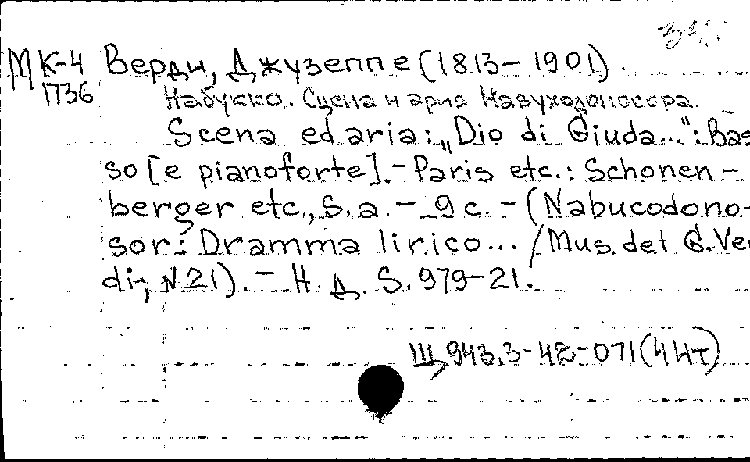 МК-4 Верди, Джузеппе (1813-1901)
1736 Набукко. Сцена и ария Навуходоносора.
Scena ed aria: „Dio di Giuda...": Bas
so [e pianoforte]. - Paris etc.: Schonen-
berger etc., S. a. - 9 c. - (Nabucodono-
sor: Dramma lirico... / Mus. del G. Ve
di; N21). - Н. Д. S. 979-21.
Щ 943.3-48-071 (4Ит)